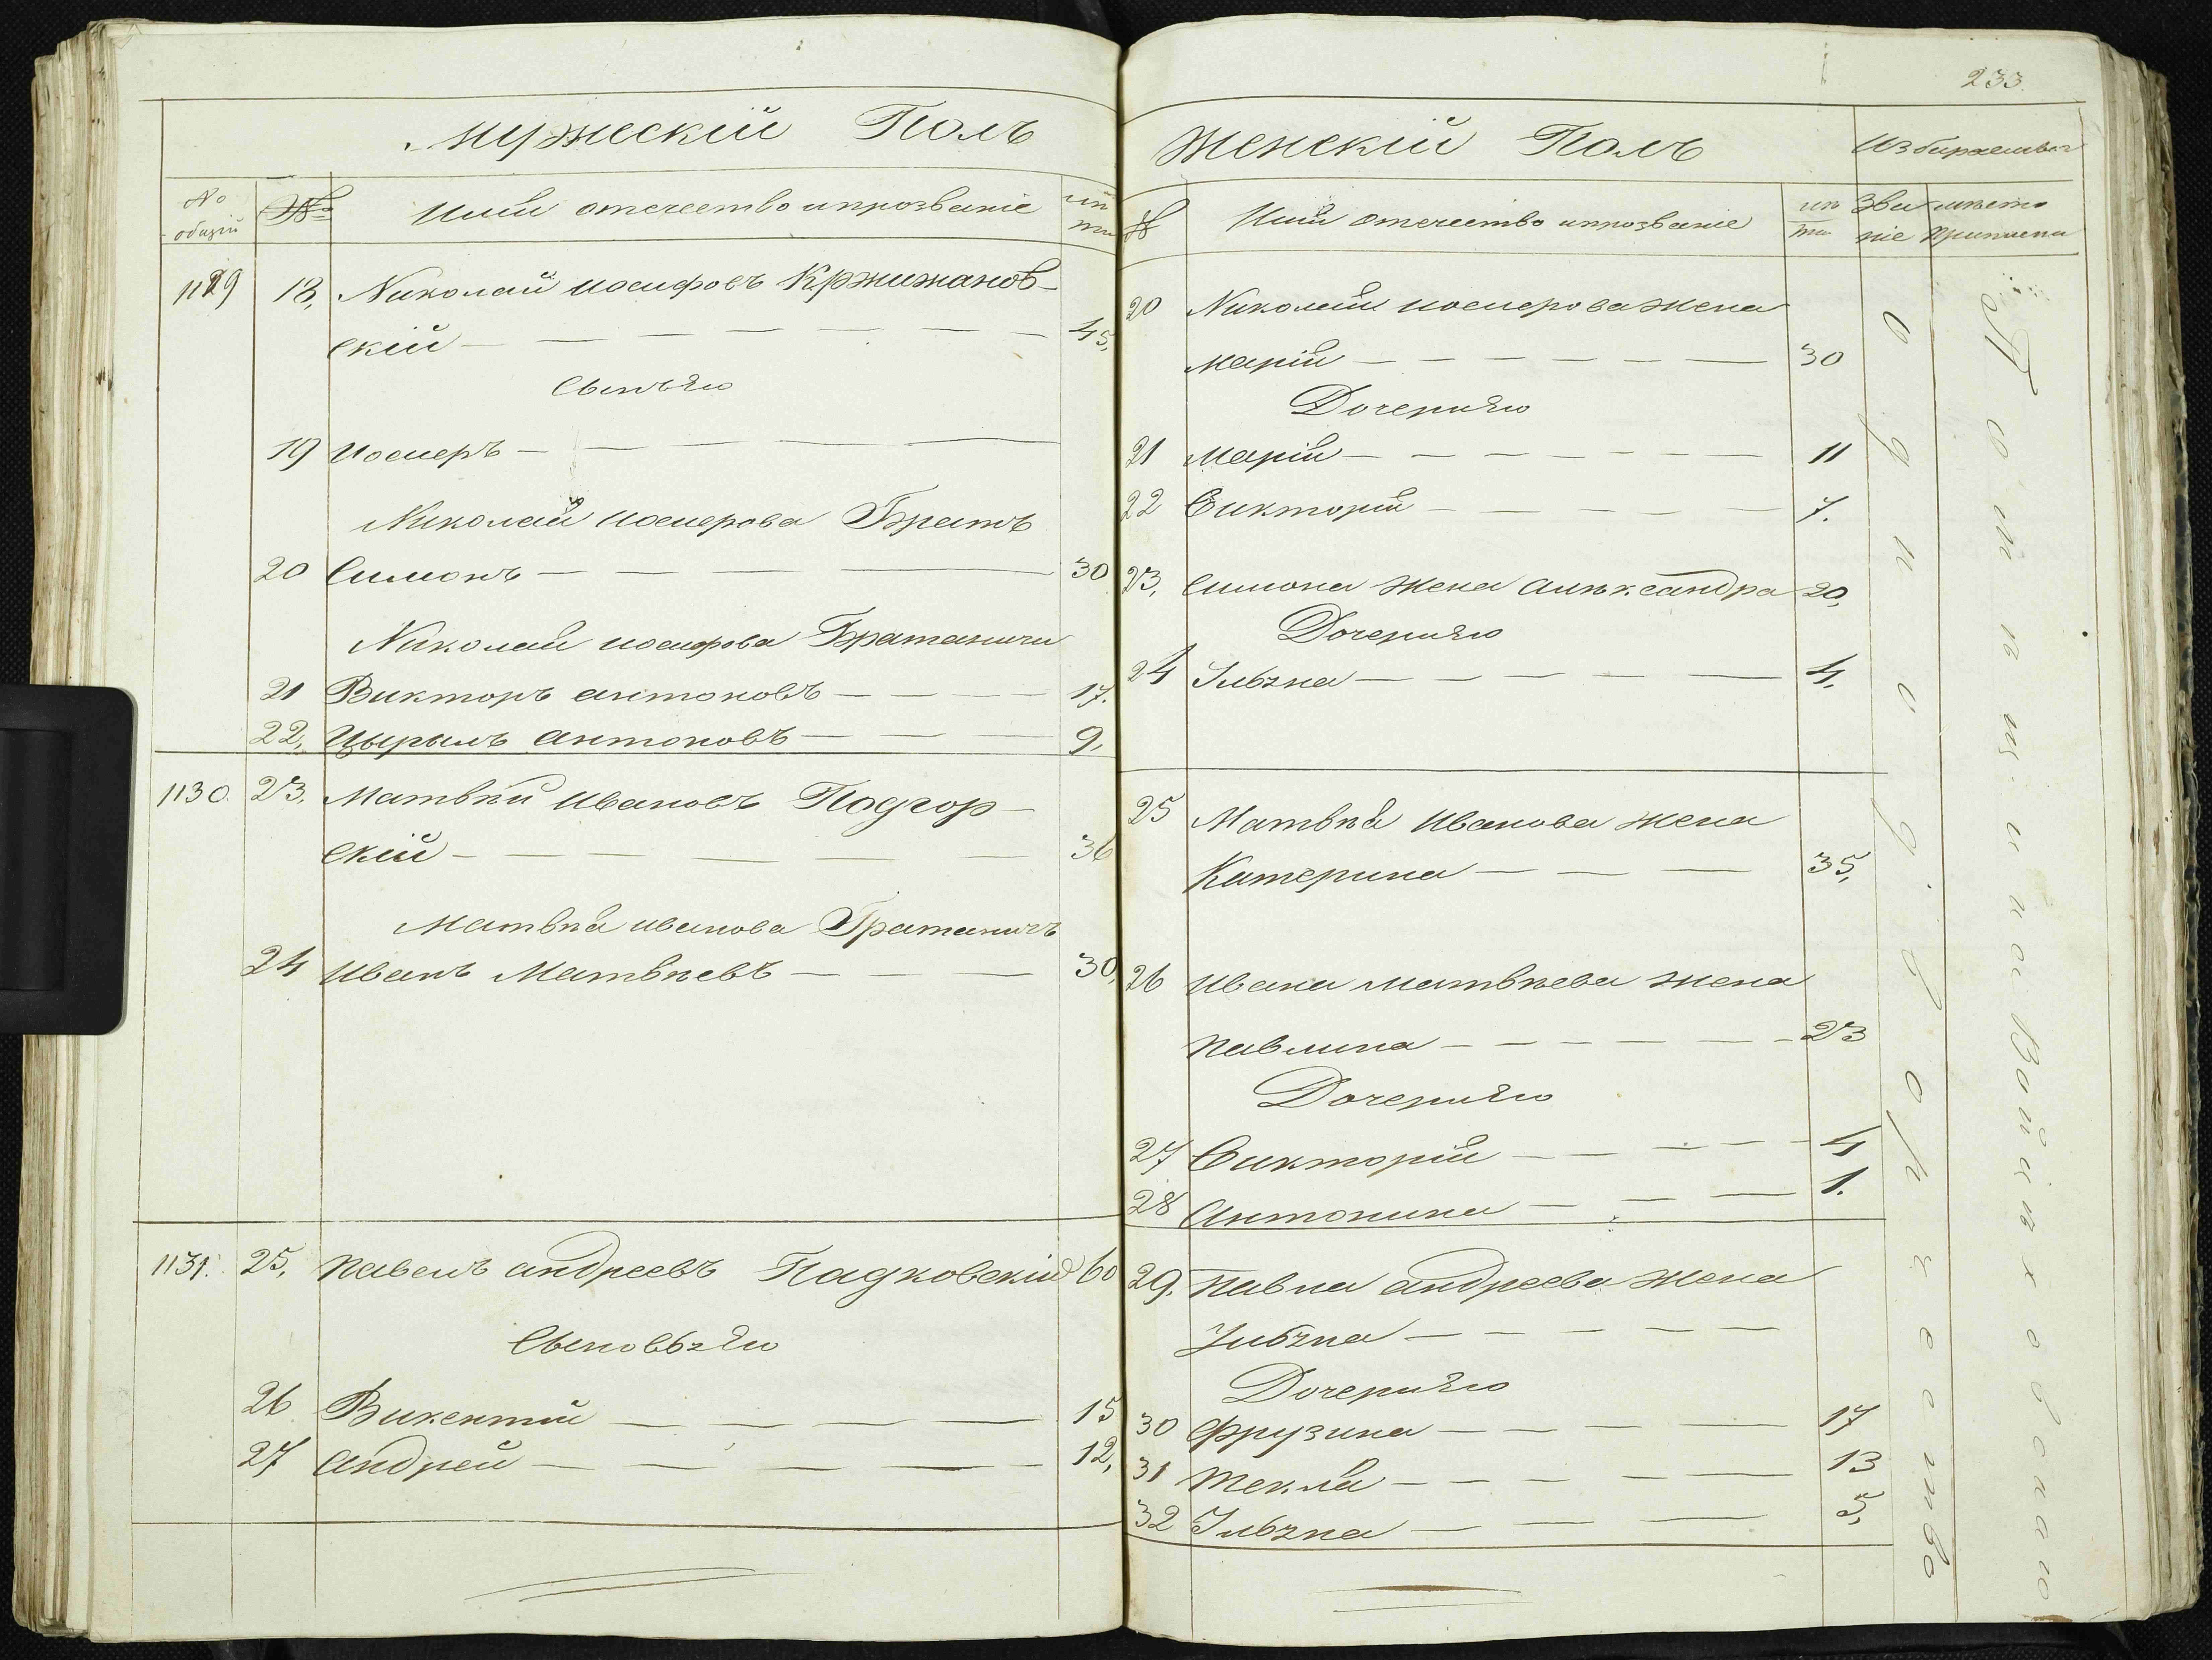 233.
Мужескій Полъ
№ общій
№
Имя отечество и прозваніе
лѣта
1129 18, Николай Иосифовъ Кржижанов-
скій — 45,
Сынъ Его
19 Иосифъ —
Николая Иосифова Братъ
20 Симонъ — 30
Николая Иосифова Братаничи
21 Викторъ Антоновъ — 17.
22, Цырыль Антоновъ — 9,
1130. 23. Матвѣй Ивановъ Подгор-
скій — 36
Матвѣя Иванова Братаничъ
24 Иванъ Матвѣевъ — 30,
1131. 25, Павелъ Андреевъ Падковскій 60
Сыновья Его
26 Викентій — 15
27 Андрей — 12,
Женскій Полъ
№
Имя отечество и прозваніе
лѣта
Избираемыя
Званіе
мѣсто приписки
20 Николая Иосифова жена
Марія — 30
Дочери Его
21 Марія — 11
22 Викторія — 7.
23, Симона жена Александра 20,
Дочери Его
24 Ильзна — 4,
25 Матвѣя Иванова жена
Катерина — 35,
26 Ивана Матвѣева жена
Павлина — 23
Дочери Его
27 Викторія — 4
28 Антонина — 1.
29. Павла Андреева жена
Ильзна —
Дочери Его
30 Фрузина — 17
31 Текля — 13
32 Ильзна — 5,
Однодворчество